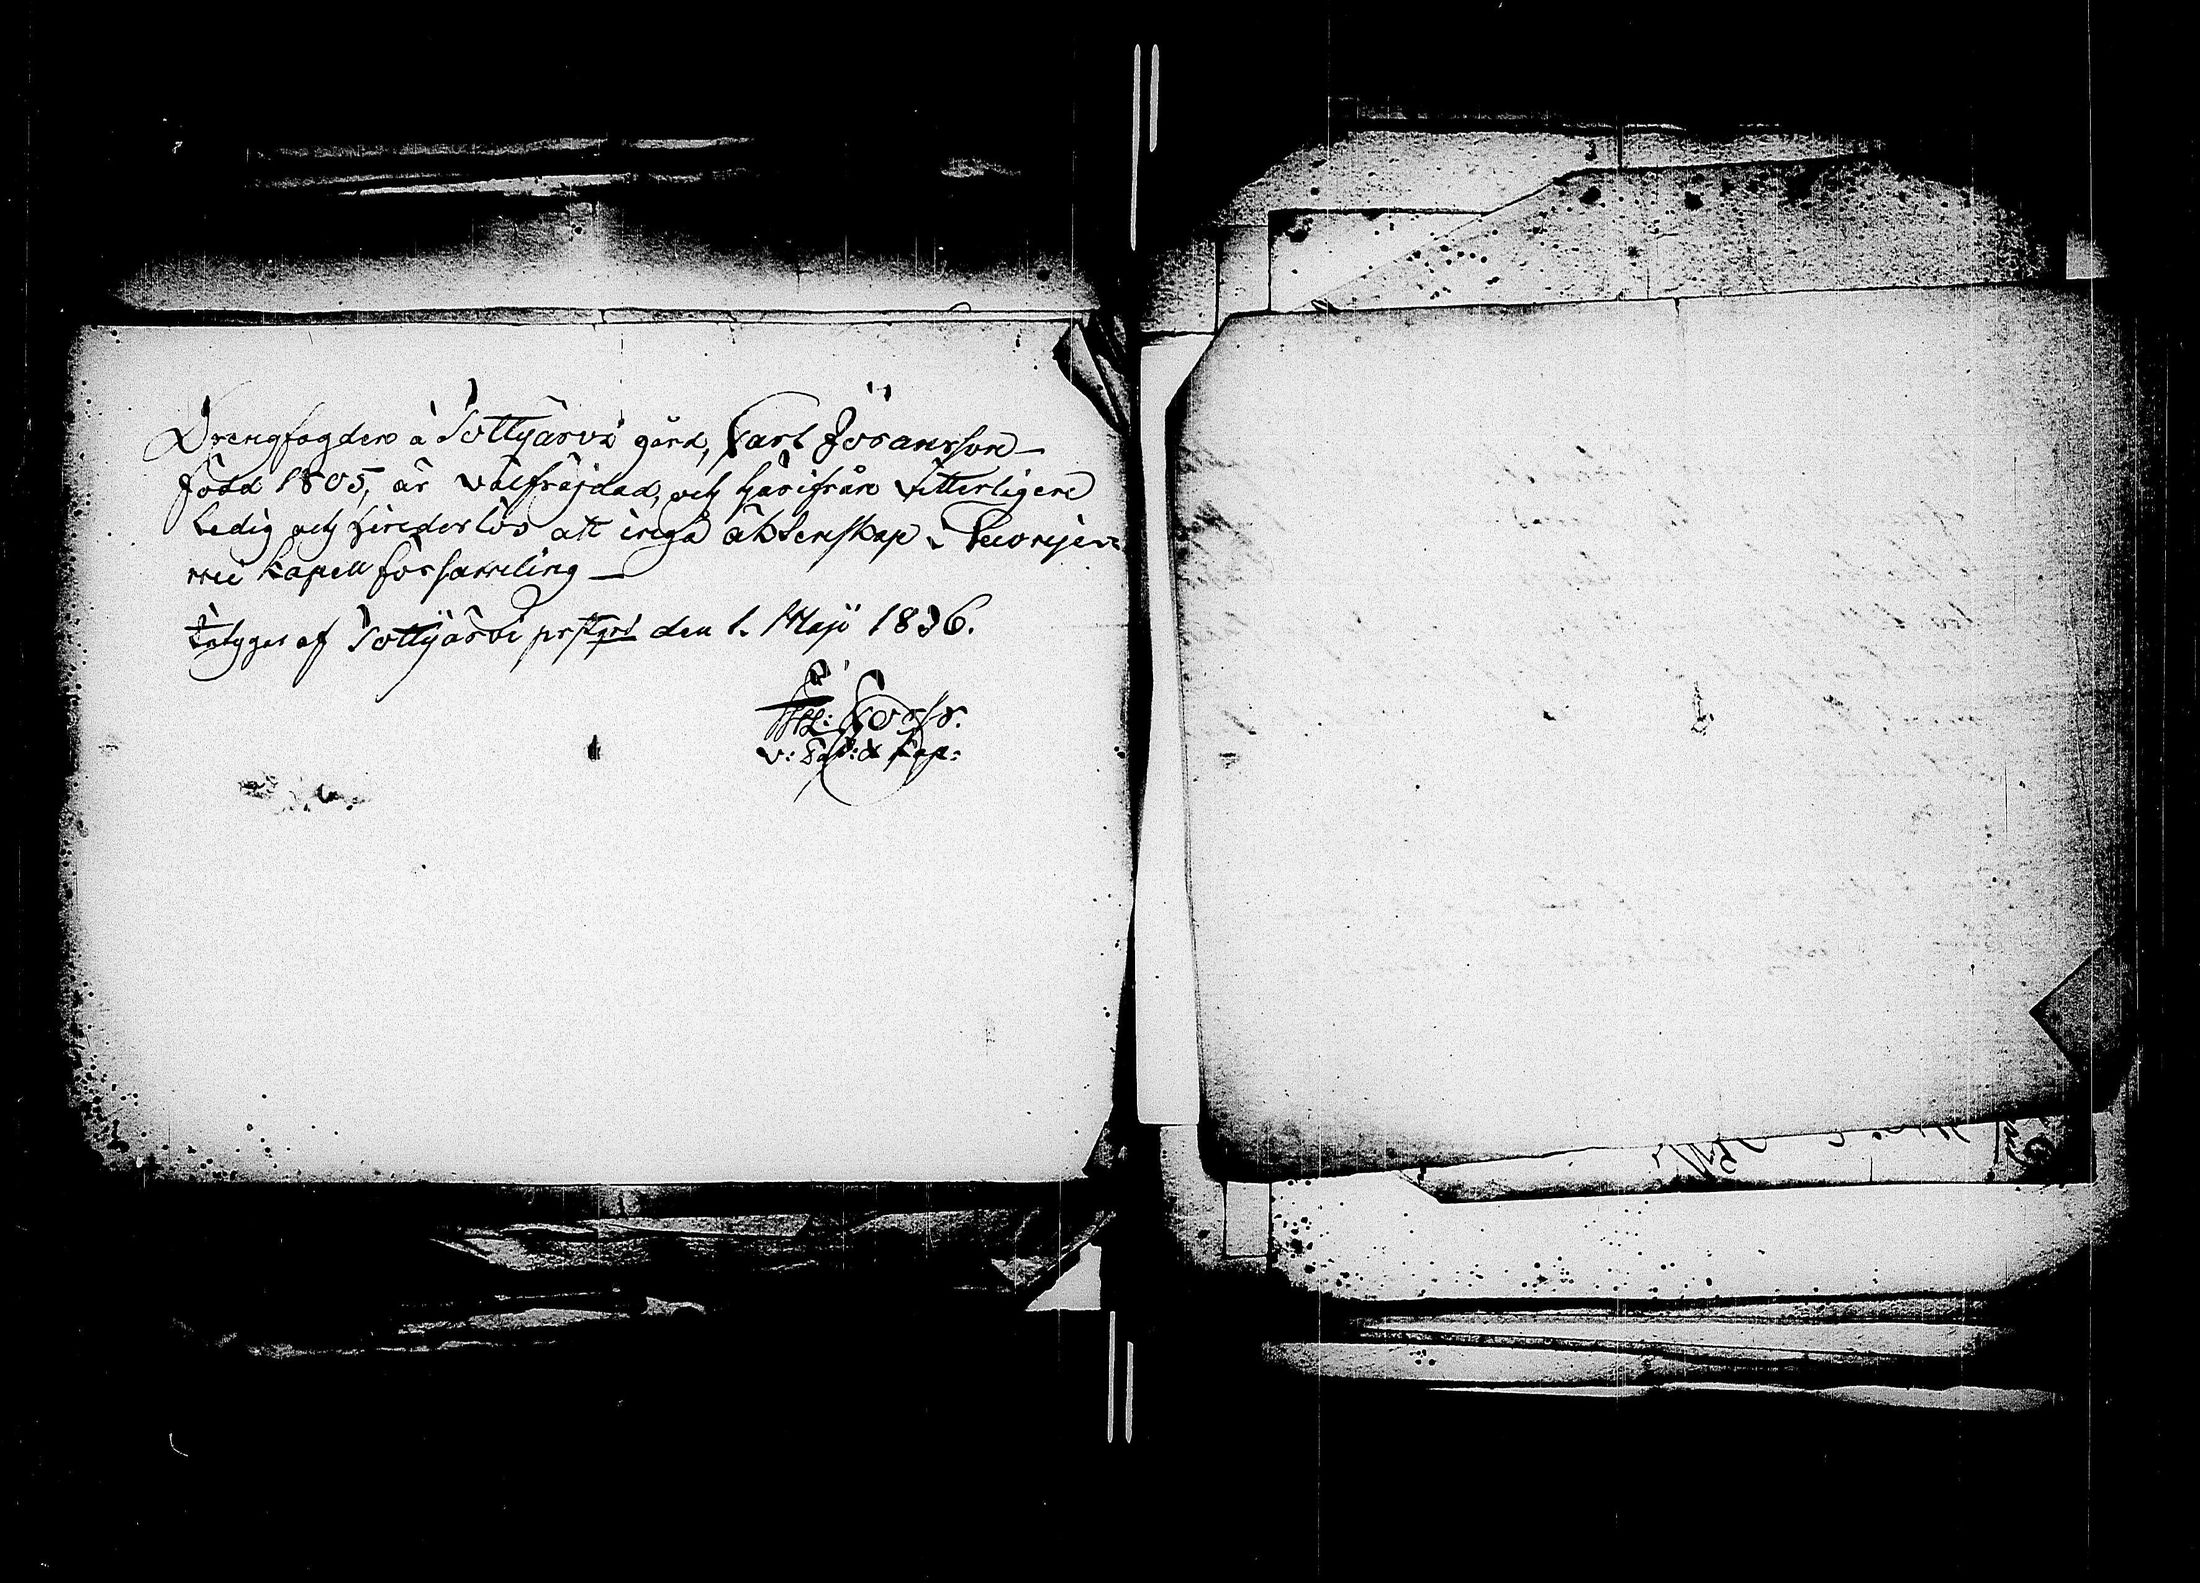 Drengfogden å Tottijärvi gård, Carl Göransson
född 1805, är välfrejdad, och härifrån vitterligen
Ledig och hinderlös att ingå äktenskap i Kuorije-
mei Kapell församling —
Intygas af Tottijärvi prstgrd den 1. Maji 1836.
v: Past: & Kap: